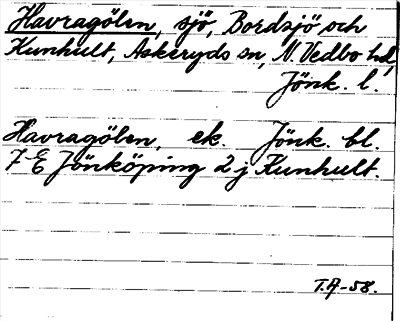 Havragölen, sjö, Bordsjö och
Kunhult, Askeryds sn, N. Vedbo hd,
Jönk. l.
Havragölen, ek. Jönk. bl.
7-E Jönköping 2 j Kunhult.
T.A-58.